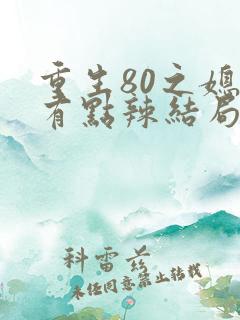 重生80之媳
有點辣結局
科雷
未经同意禁止转载